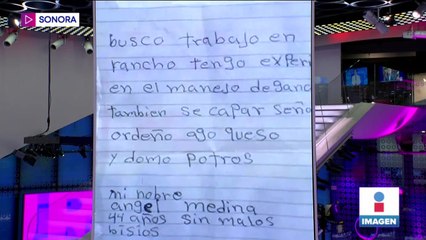 SONORA
busco trabajo en
rancho tengo exper
en el manejo de gana
tambien se capar seña
ordeño ago queso
y domo potros
mi nobre
angel medina
44 años sin malos
bisios
IMAGEN